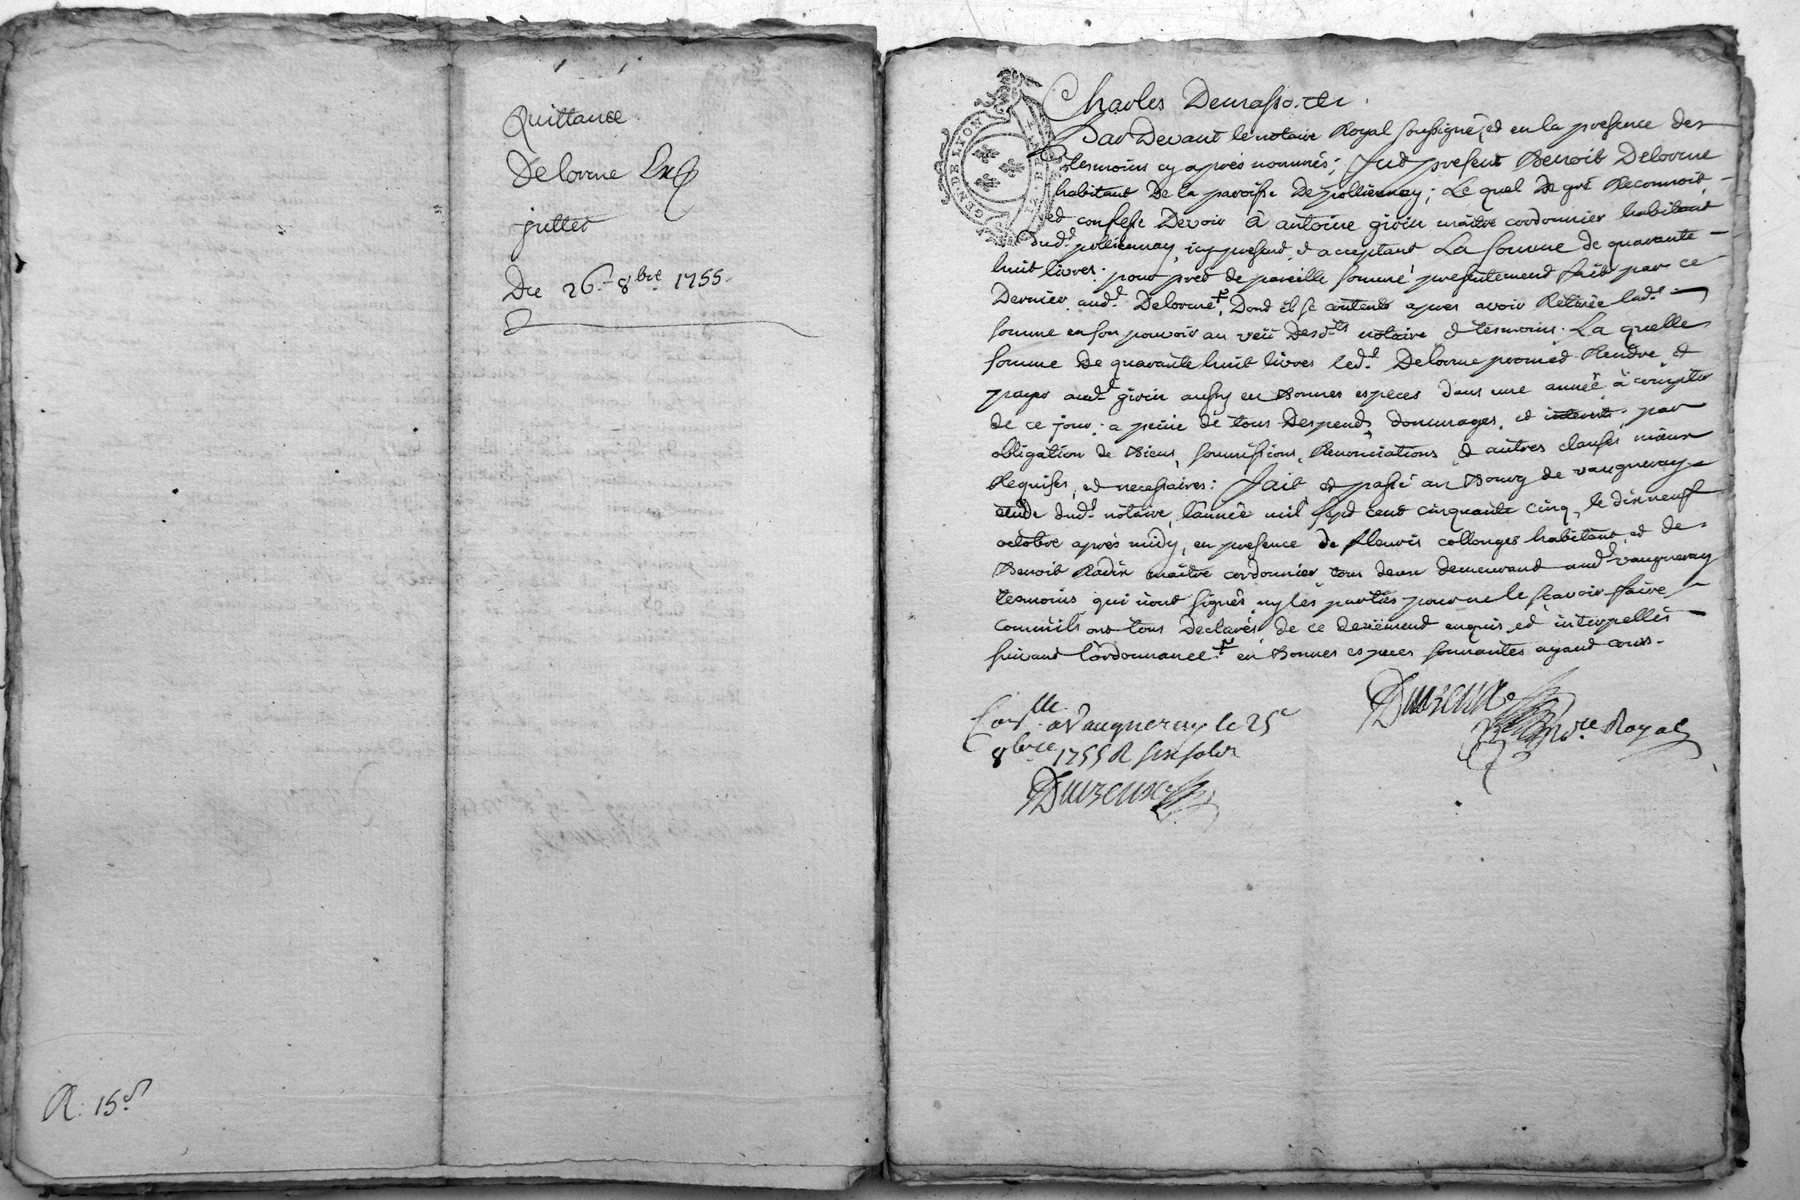 Quittance
Delorme
jullet
Du 26.e 8bre 1755.
R. 15 s
GEN. DE LYON
Charles
Par Devant le notaire Royal soussigné, et en la presence des
tesmoins cy aprés nommés; fut present Benoit Delorme
habitant de la paroisse de pollionnay; Le quel de gré Reconnoit,
et confesse Devoir à antoine girin maitre cordonnier habitant
dud.t pollionnay, icy present, et acceptant La somme de quarante
huit livres. pour pret de pareille somme presentement fait par ce
Dernier aud.t Delorme Ŧ, Dont il se contente apres avoir Retirée lad.te
somme en son pouvoir au veü Desd.ts notaire & tesmoins. La quelle
somme de quarante huit livres led.t Delorme promet Rendre, et
payer aud.t girin aussy en Bonnes especes dans une année à compter
de ce jour. a peine de tous Despends, dommages, et interests. par
obligation de Biens, soumissions, Renonciations & autres clauses mieux
Requises, et necessaires: fait et passé au Bourg de vaugneray
etude dud.t notaire, l'année mil sept cent cinquante cinq, le dix neuf
octobre après midy, en presence de fleuris collonges habitant, et de
Benoit Radix maitre cordonnier, tous deux demeurant aud.t vaugneray
tesmoins qui n'ont signés, ny les parties pour ne le sçavoir faire
comm'ils ont tous Declarés, de ce deüement enquis, et interpellés
suivant l'ordonnance. Ŧ en Bonnes especes sonnantes ayant cours.
Con.lle à Vaugneray le 25e
8bre 1755 R six sols
n.re Royal